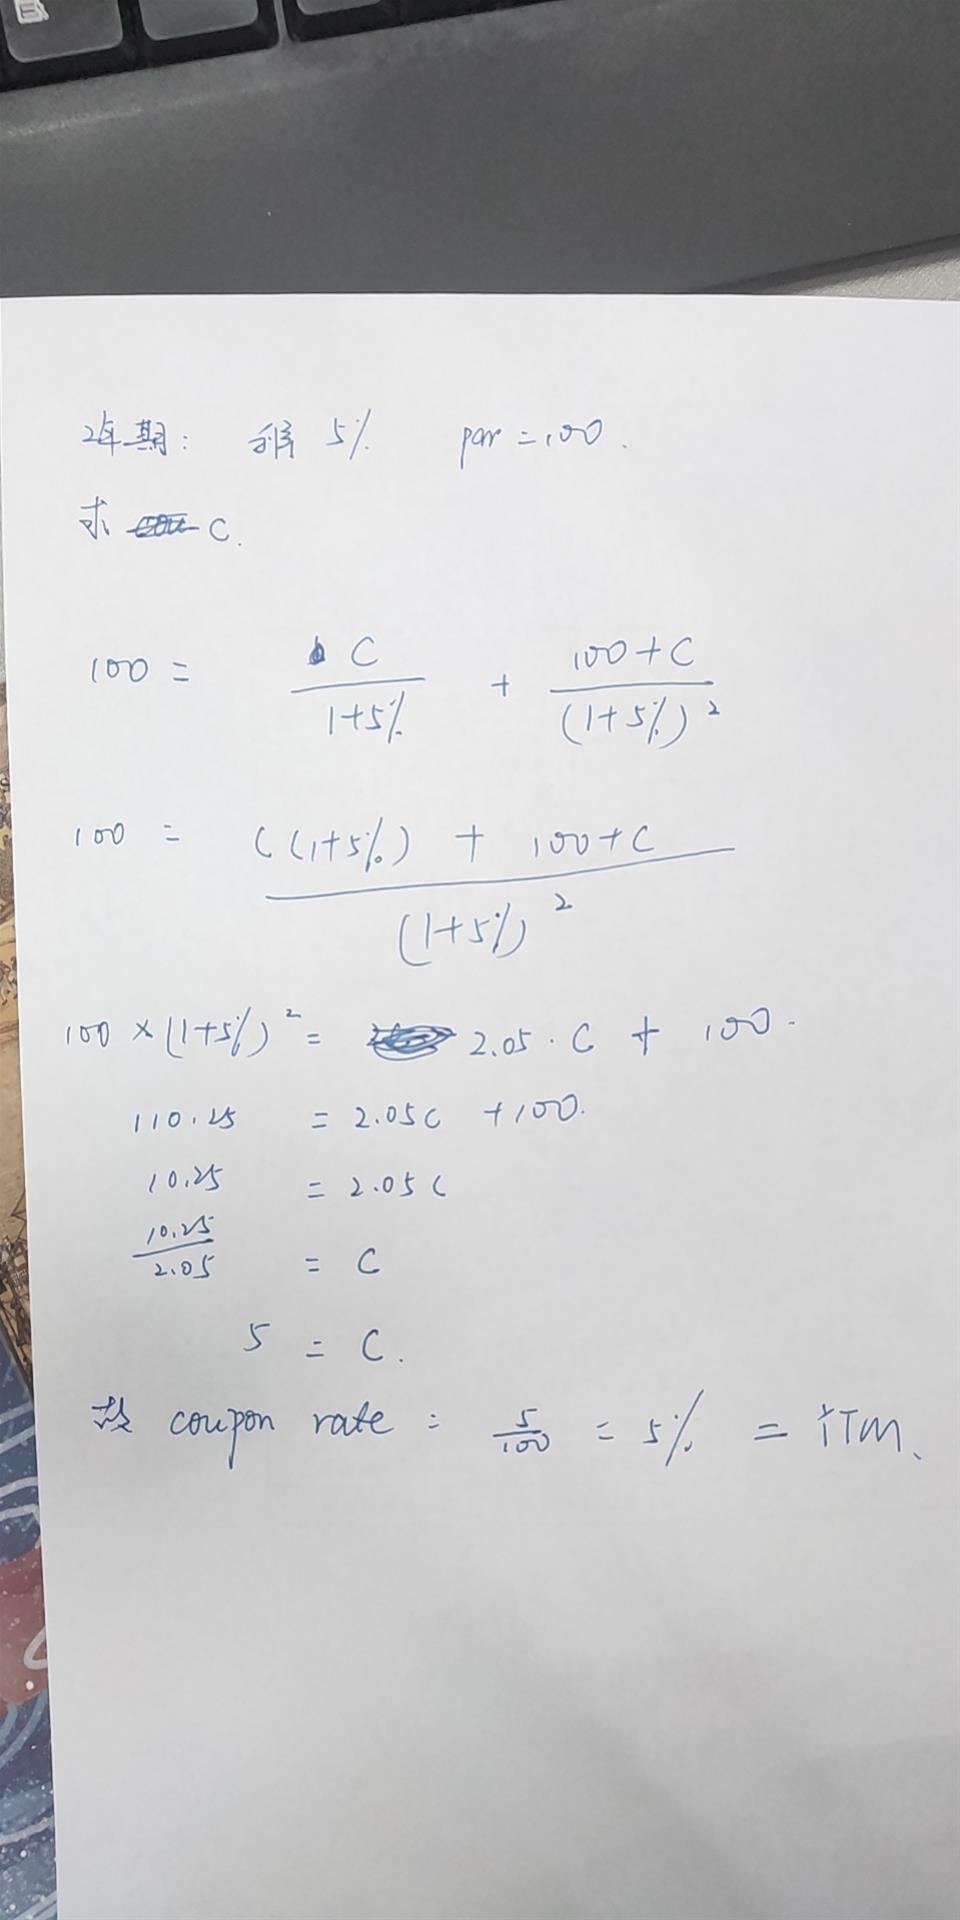 2年期: 利率 5% par = 100.
求 C.
100 = C / 1+5% + 100+C / (1+5%)²
100 = C(1+5%) + 100+C / (1+5%)²
100 × (1+5%)² = 2.05 · C + 100.
110.25 = 2.05C +100.
10.25 = 2.05C
10.25 / 2.05 = C
5 = C.
故 coupon rate = 5/100 = 5% = YTM.